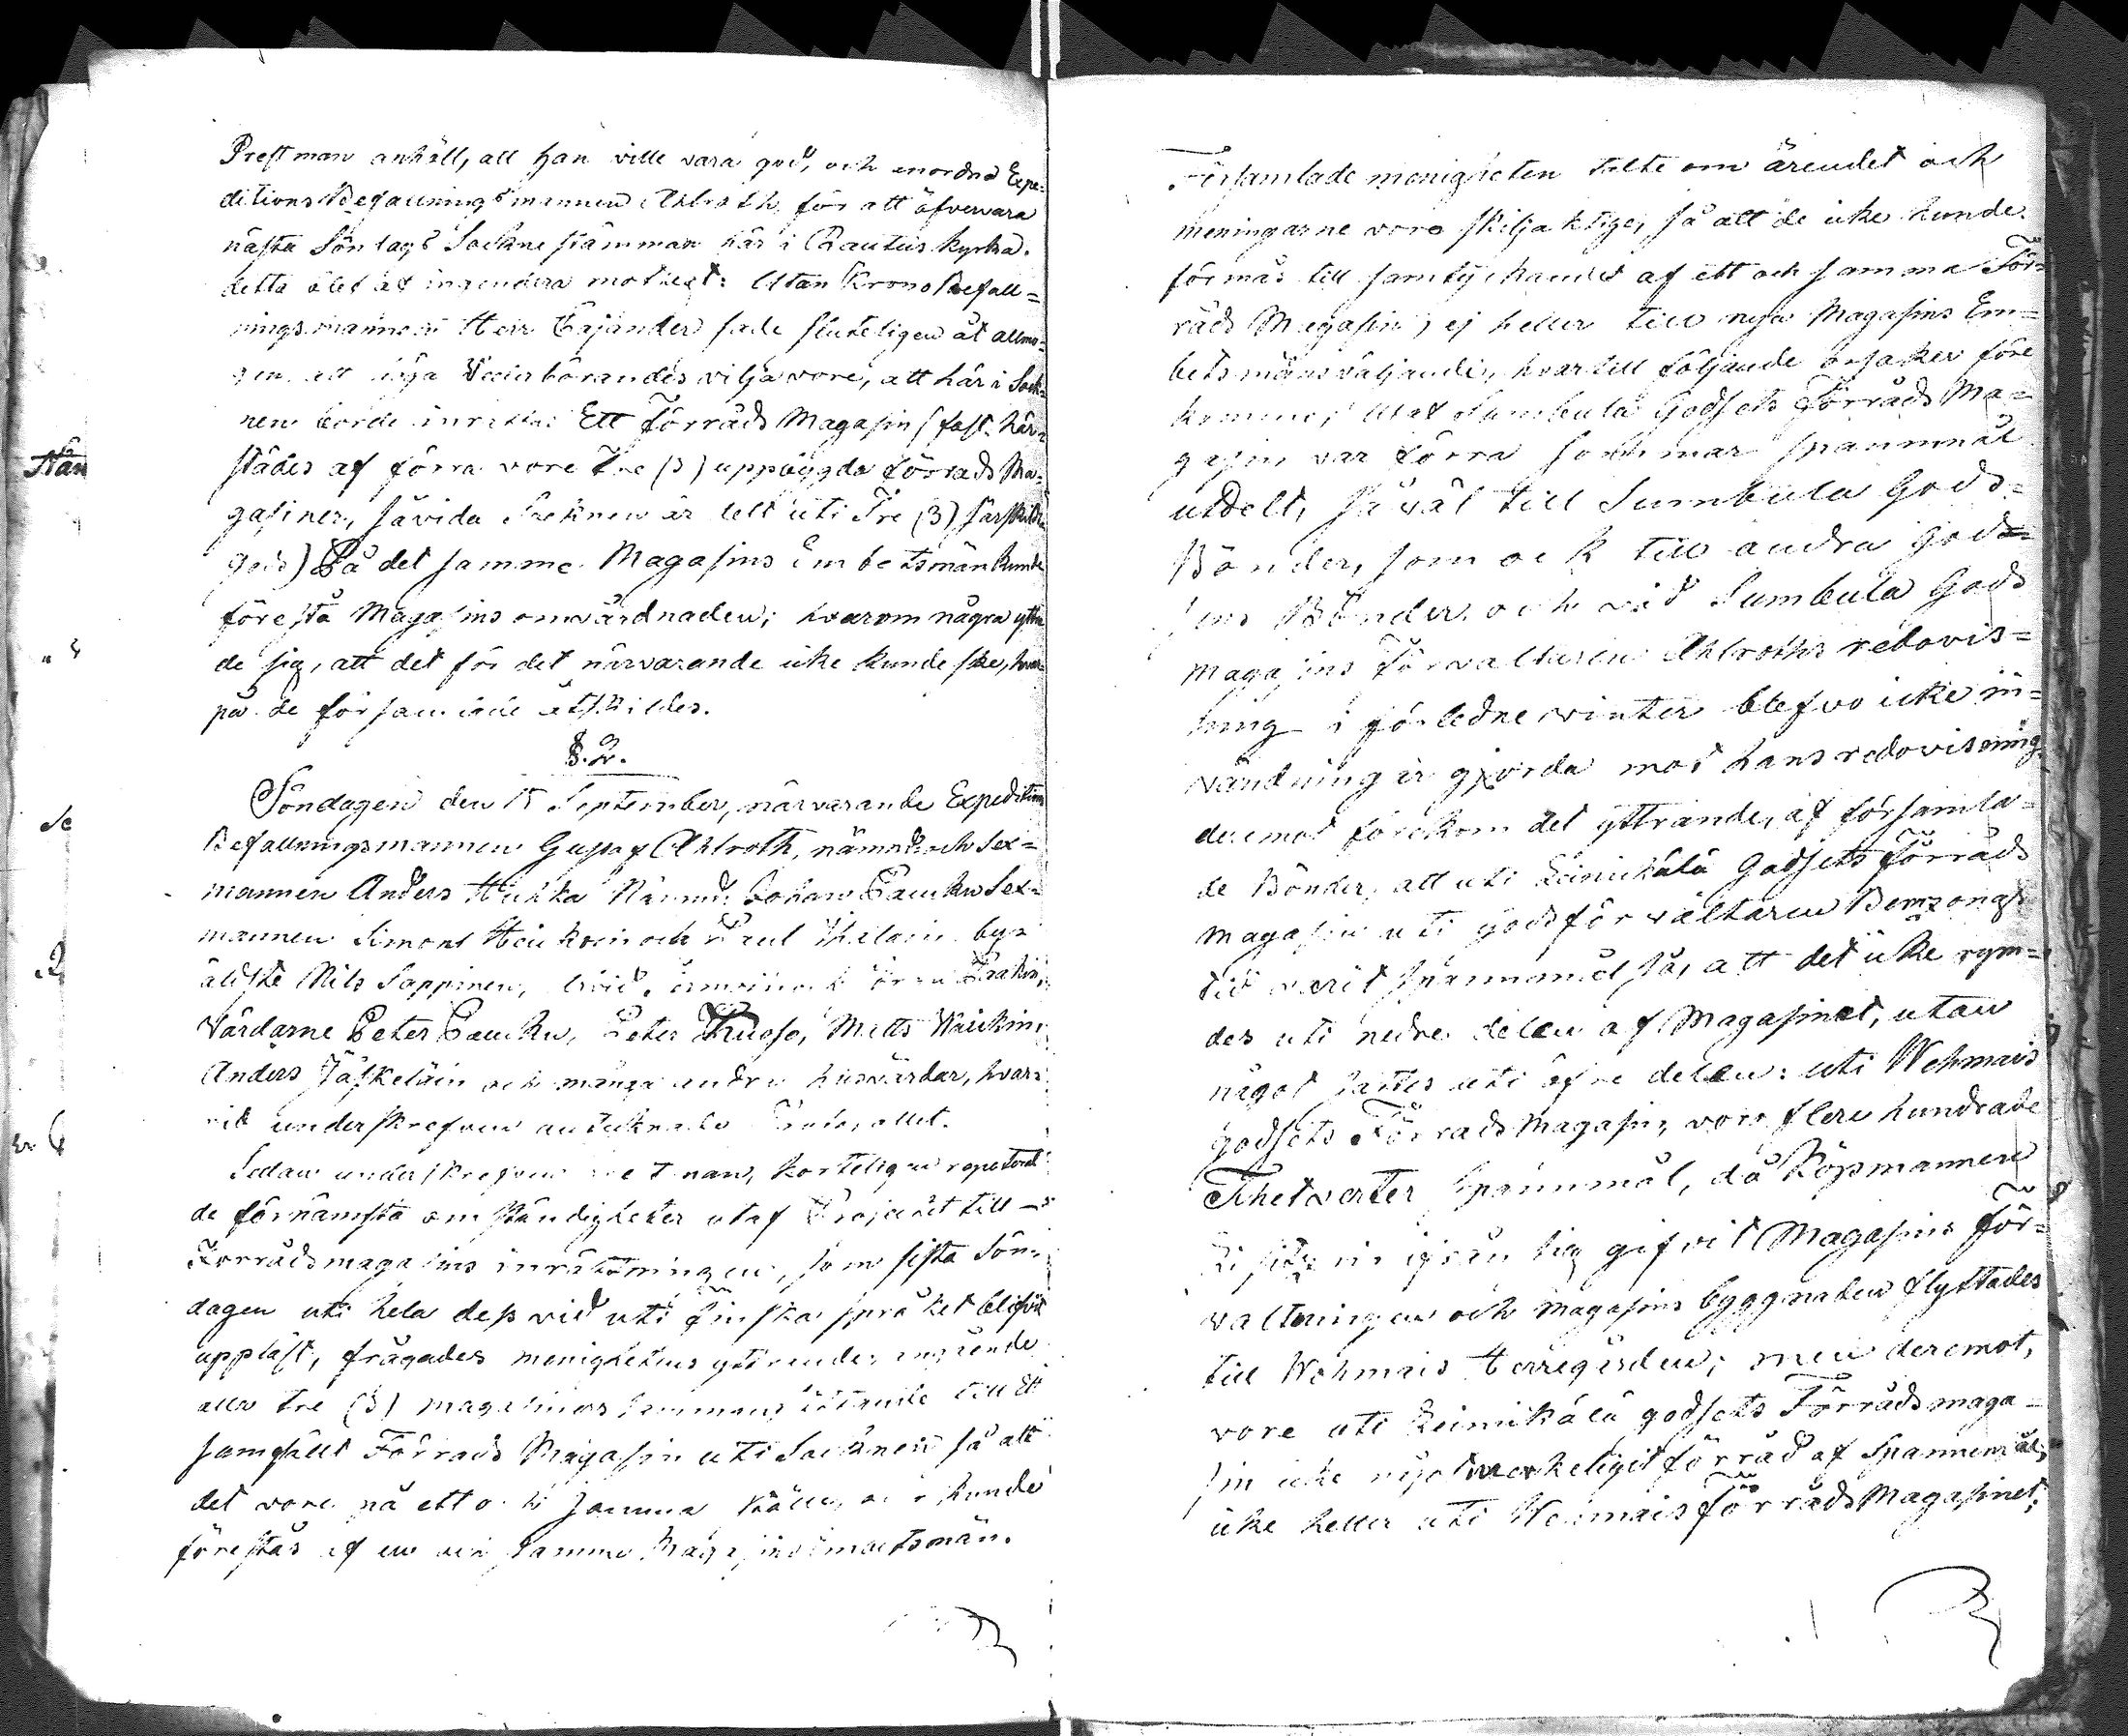 Prestman anhöll, att han ville vara god, och anordna Expe=
ditions Befallningsmannen Ahlroth, för att öfvervara
nästa Söndags Sockne stämman här i Rautus kyrka.
detta blef af ingendera motsagt: Utan Krono Befall=
nings mannen Herr Cajander sade sluteligen åt allmo=
gen att höga Vederbörandes vilja vore, att här i Sock=
nen borde inrättas Ett Förråds Magasin (fast här=
städes af förra vore Tre (3) uppbygda förråds Ma=
gasiner, såvida Socknen är delt uti Tre (3) särskilda
gods) På det samma Magasins Embetsmän kunde
förestå Magasins omvårdnaden; hvarom några yttra
de sig, att det för det närvarande icke kunde ske, hvar=
på de församlade åtskildes.
§. 2.
Söndagen den 15 September, närvarande Expeditions
Befallningsmannen Gustaf Ahlroth, nämnd och Sex=
mannen Anders Hukka Nämnd. Johan Paucku Sex=
mannen Simon Heinkoin och Paul by=
äldste Nils Sappinen,
Värdarne Peter Paucku, Peter Kuosa, Matts
Anders Jäskeläin och många andra husvärdar, hvar=
vid underskrefven antecknade Protocollet.
Sedan underskrefven Prestman, korteligen repeterat
de förnämsta omständigheter utaf Projectet till
Förrådsmagasins inrättningen, som sista Sön=
dagen uti hela dess vid uti finska språket blifvit
uppläst, frågades menighetens yttrande, angående
alla tre (3) magasiners sammansättande till Ett
samfällt Förråds Magasin uti Socknen så att
det vore på ett och samma ställe, och kunde
förestås af en och samma Magasins Embetsmän.
Församlade menigheten talte om ärendet och
meningarne voro skiljaktige, så att de icke kunde
förmås till samtyckandet af ett och samma För=
råds Magasin, ej heller till nya Magasins Em=
betsmäns väljande, hvartill följande orsaker före
kommo; Utaf Sumbula Godsets Förråds Ma=
gasin var förra sommar spannmål
utdelt, så väl till Sumbula Gods=
Bönder, som ock till andra gods=
sens Bönder, och vid Sumbula Gods
magasins Förvaltaren Ahlroths redovis=
ning i förledne winter blefvo icke in=
vändningar gjorda mot hans redovisning,
deremot förekom det yttrande, af församla=
de Bönder, att uti Leinikälä Godsets Förråds
magasin uti godsförvaltaren
tid varit spannmål så, att det icke rym=
des uti nedre delen af Magasinet, utan
något sattes uti öfre delen: uti Wehmais
godsets Förrådsmagasin, voro flere hundrade
Thetverter Spannmål, då Köpsmannen
ifrån sig gifvit Magasins För=
valtningen och Magasins byggnaden flyttades
till Wehmais Herregården; men deremot,
vore uti Leinikälä godsets Förrådsmaga=
sin icke något märkeligit förråd af Spannemål,
icke heller uti Wehmais Förråds Magasinet;